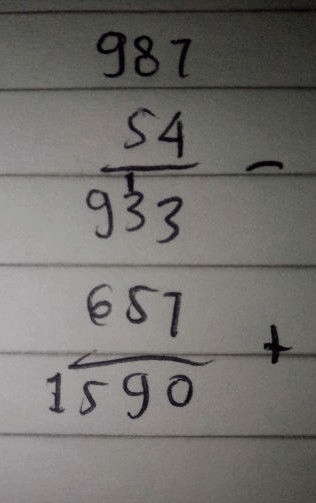 987
54 -
933
657 +
1590